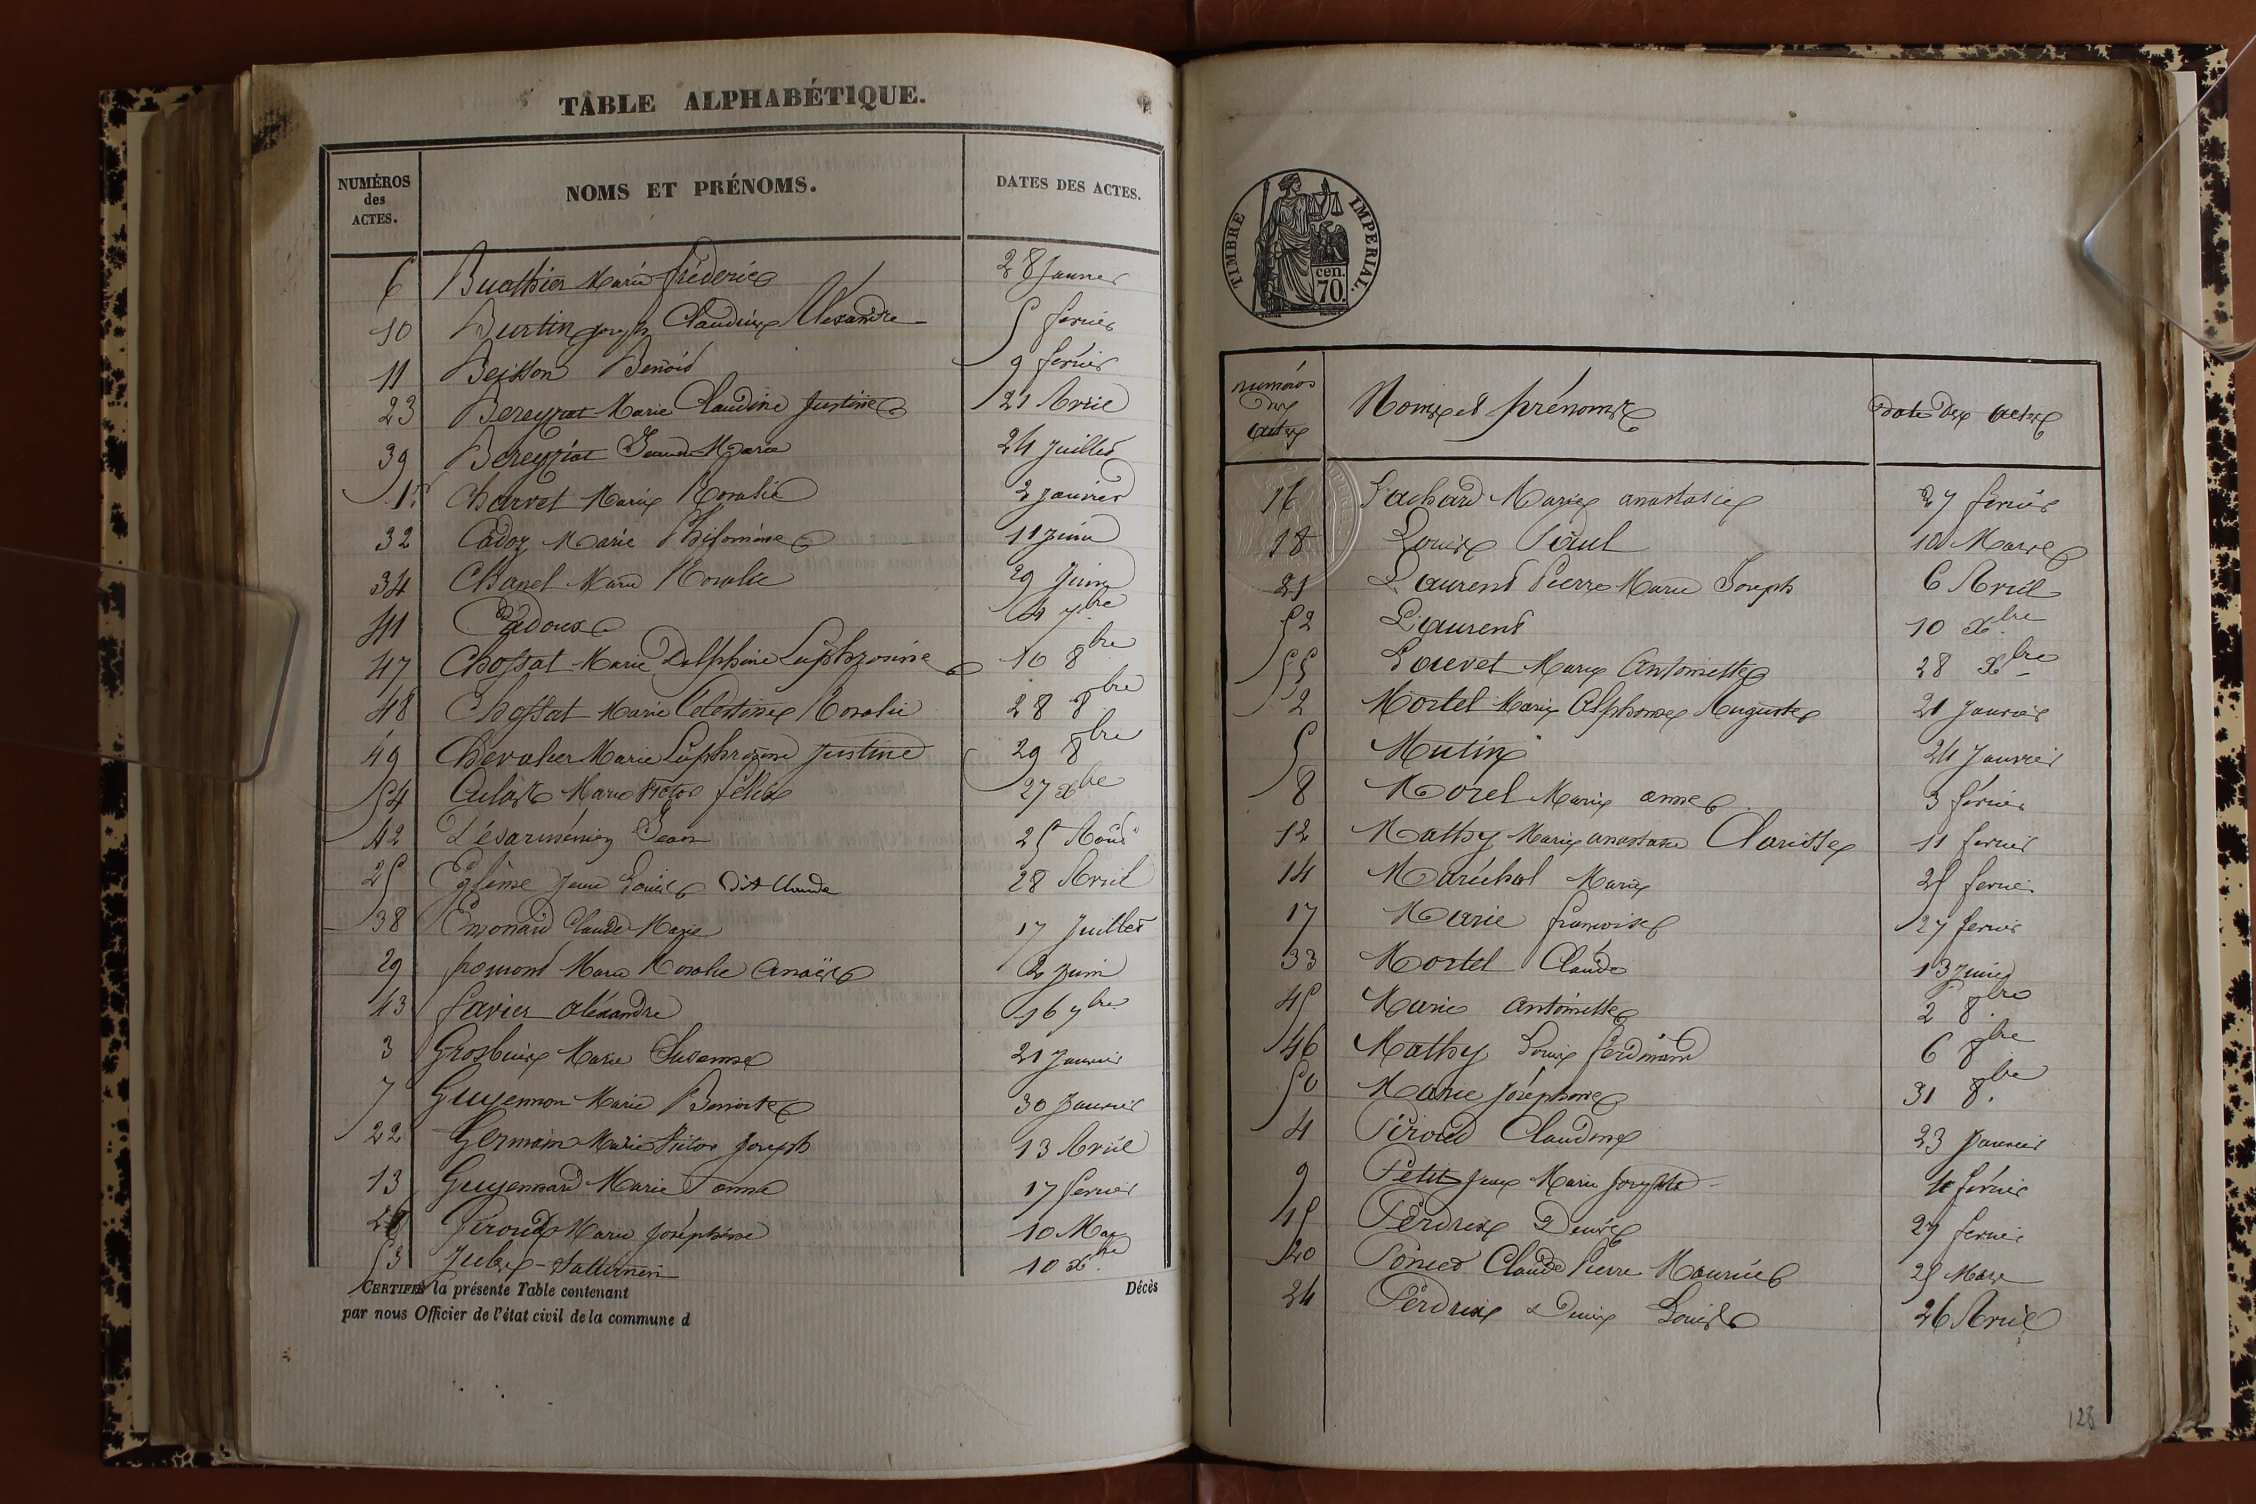 TABLE ALPHABÉTIQUE.
NUMÉROS des ACTES.
NOMS ET PRÉNOMS.
DATES DES ACTES.
6 Buathier Marie frédéric 28 Janvier
10 Burtin joseph Claudius Alexandre 5 fevrier
11 Beisson Benoit 9 fevrier
23 Bereyziat Marie Claudine Justine 21 Avril
39 Bereyziat Jeanne Marie 24 juillet
1er Charvet Marie Rosalie 2 janvier
32 Cadoz Marie Philomène 11 Juin
34 Chanel Marie Rosalie 29 Juin
41 Cadoux 4 7bre
47 Chossat Marie Delphine Euphrosine 10 8bre
48 Chossat Marie Célestine Rosalie 28 8bre
49 Chevalier Marie Euphrosine Justine 29 8bre
54 Marie Victor félix 27 xbre
42 Jean 25 Août
25 Jean Louis dit Claude 28 Avril
38 Emonard Claude Marie 17 Juillet
29 fromont Marie Rosalie Anaïs 2 Juin
43 favier alexandre 16 7bre
3 Grosbuis Marie Susanne 21 Janvier
7 Guyennon Marie Benoite 30 Janvier
22 Germain Marie Victor Joseph 13 Avril
13 Guyennard Marie Jeanne 17 fevrier
28 Giroud Marie Joséphine 10 Mai
53 Jules Saturnin 10 xbre
CERTIFIÉE la présente Table contenant Décès
par nous Officier de l'état civil de la commune d
TIMBRE IMPERIAL.
cen.
70.
numéros des actes
Noms et prénoms
date des actes
16 Lachard Marie anastasie 27 fevrier
18 Louis Paul 10 Mars
21 Laurent Pierre Marie Joseph 6 Avril
52 Laurent 10 xbre
55 Louvet Marie Antoinette 28 xbre
2 Mortel Marie Alphonse Auguste 21 Janvier
5 Mutin 24 Janvier
8 Morel Marie anne 3 février
12 Mathy Marie anastasie Clarisse 11 fevrier
14 Maréchal Marie 25 fevrier
17 Marie francoise 27 fevrier
33 Mortel Claude 13 Juin
45 Marie Antoinette 2 8bre
46 Mathy Louis ferdinand 6 8bre
50 Marie Joséphine 31 8bre
4 Péroud Claudine 23 Janvier
9 Petit Jean Marie Joseph 4 février
15 Perdrix Denis 27 fevrier
20 Poncet Claude Pierre Maurice 25 Mars
24 Perdrix Denis Louis 26 Avril
128